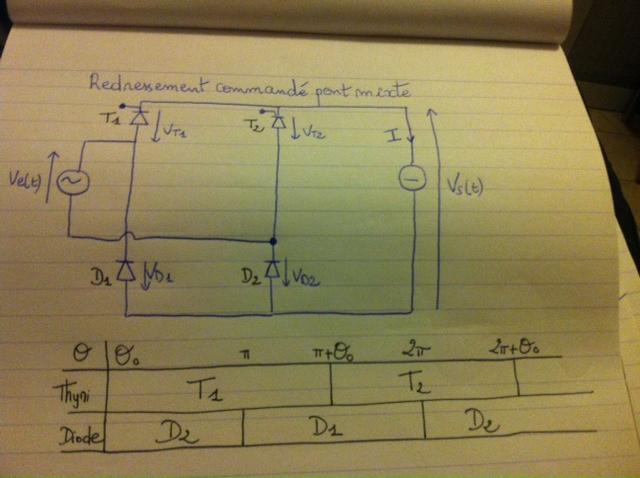 Redressement commandé pont mixte
T1 VT1 T2 VT2 I
Ve(t) ~ Vs(t)
D1 VD1 D2 VD2
θ θ0 π π+θ0 2π 2π+θ0
Thyri T1 T2
Diode D2 D1 D2